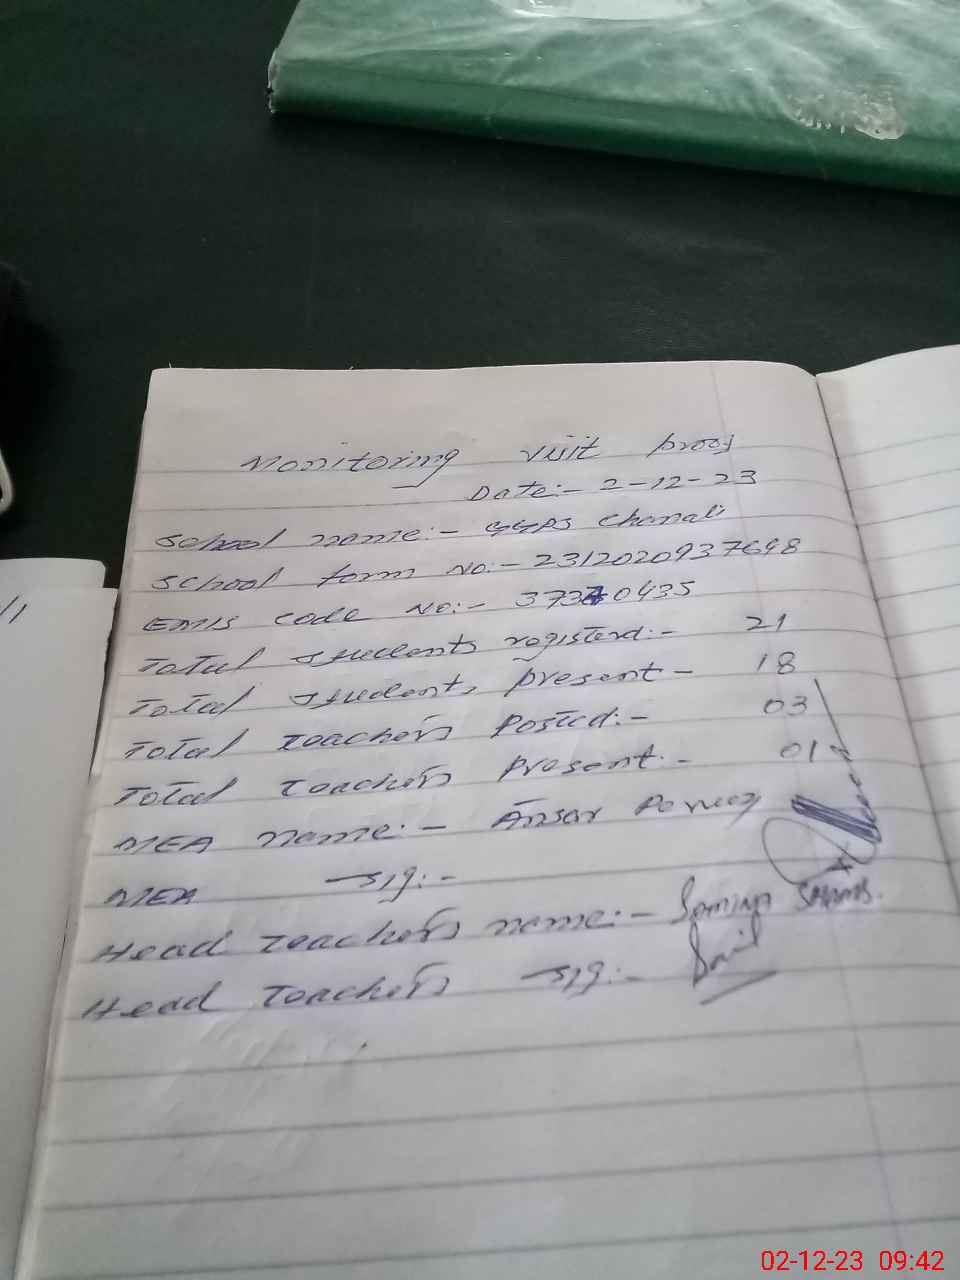 Monitoring visit proof
Date:- 2-12-23
School name:- GGPS Chanali
School form No:- 2312020937698
EMIS code No:- 37370435
Total students registerd:- 21
Total students present- 18
Total teachers Posted:- 03
Total teachers Present:- 01
MEA name:- Ansar Pervez
MEA sig:-
Head teachers name:- Samina Shams.
Head teachers sig:-
02-12-23 09:42